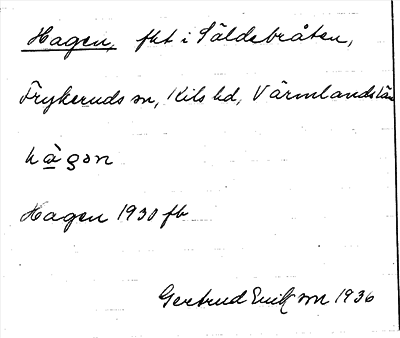 Hagen, fht i Säldebråten,
Frykeruds sn, Kils hd, Värmlands län
hàgɔn
Hagen 1930 fb
Gertrud Erikson 1936